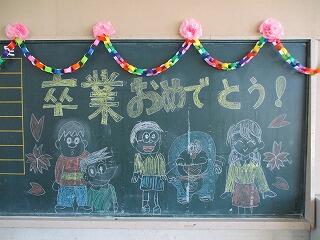 卒業おめでとう!